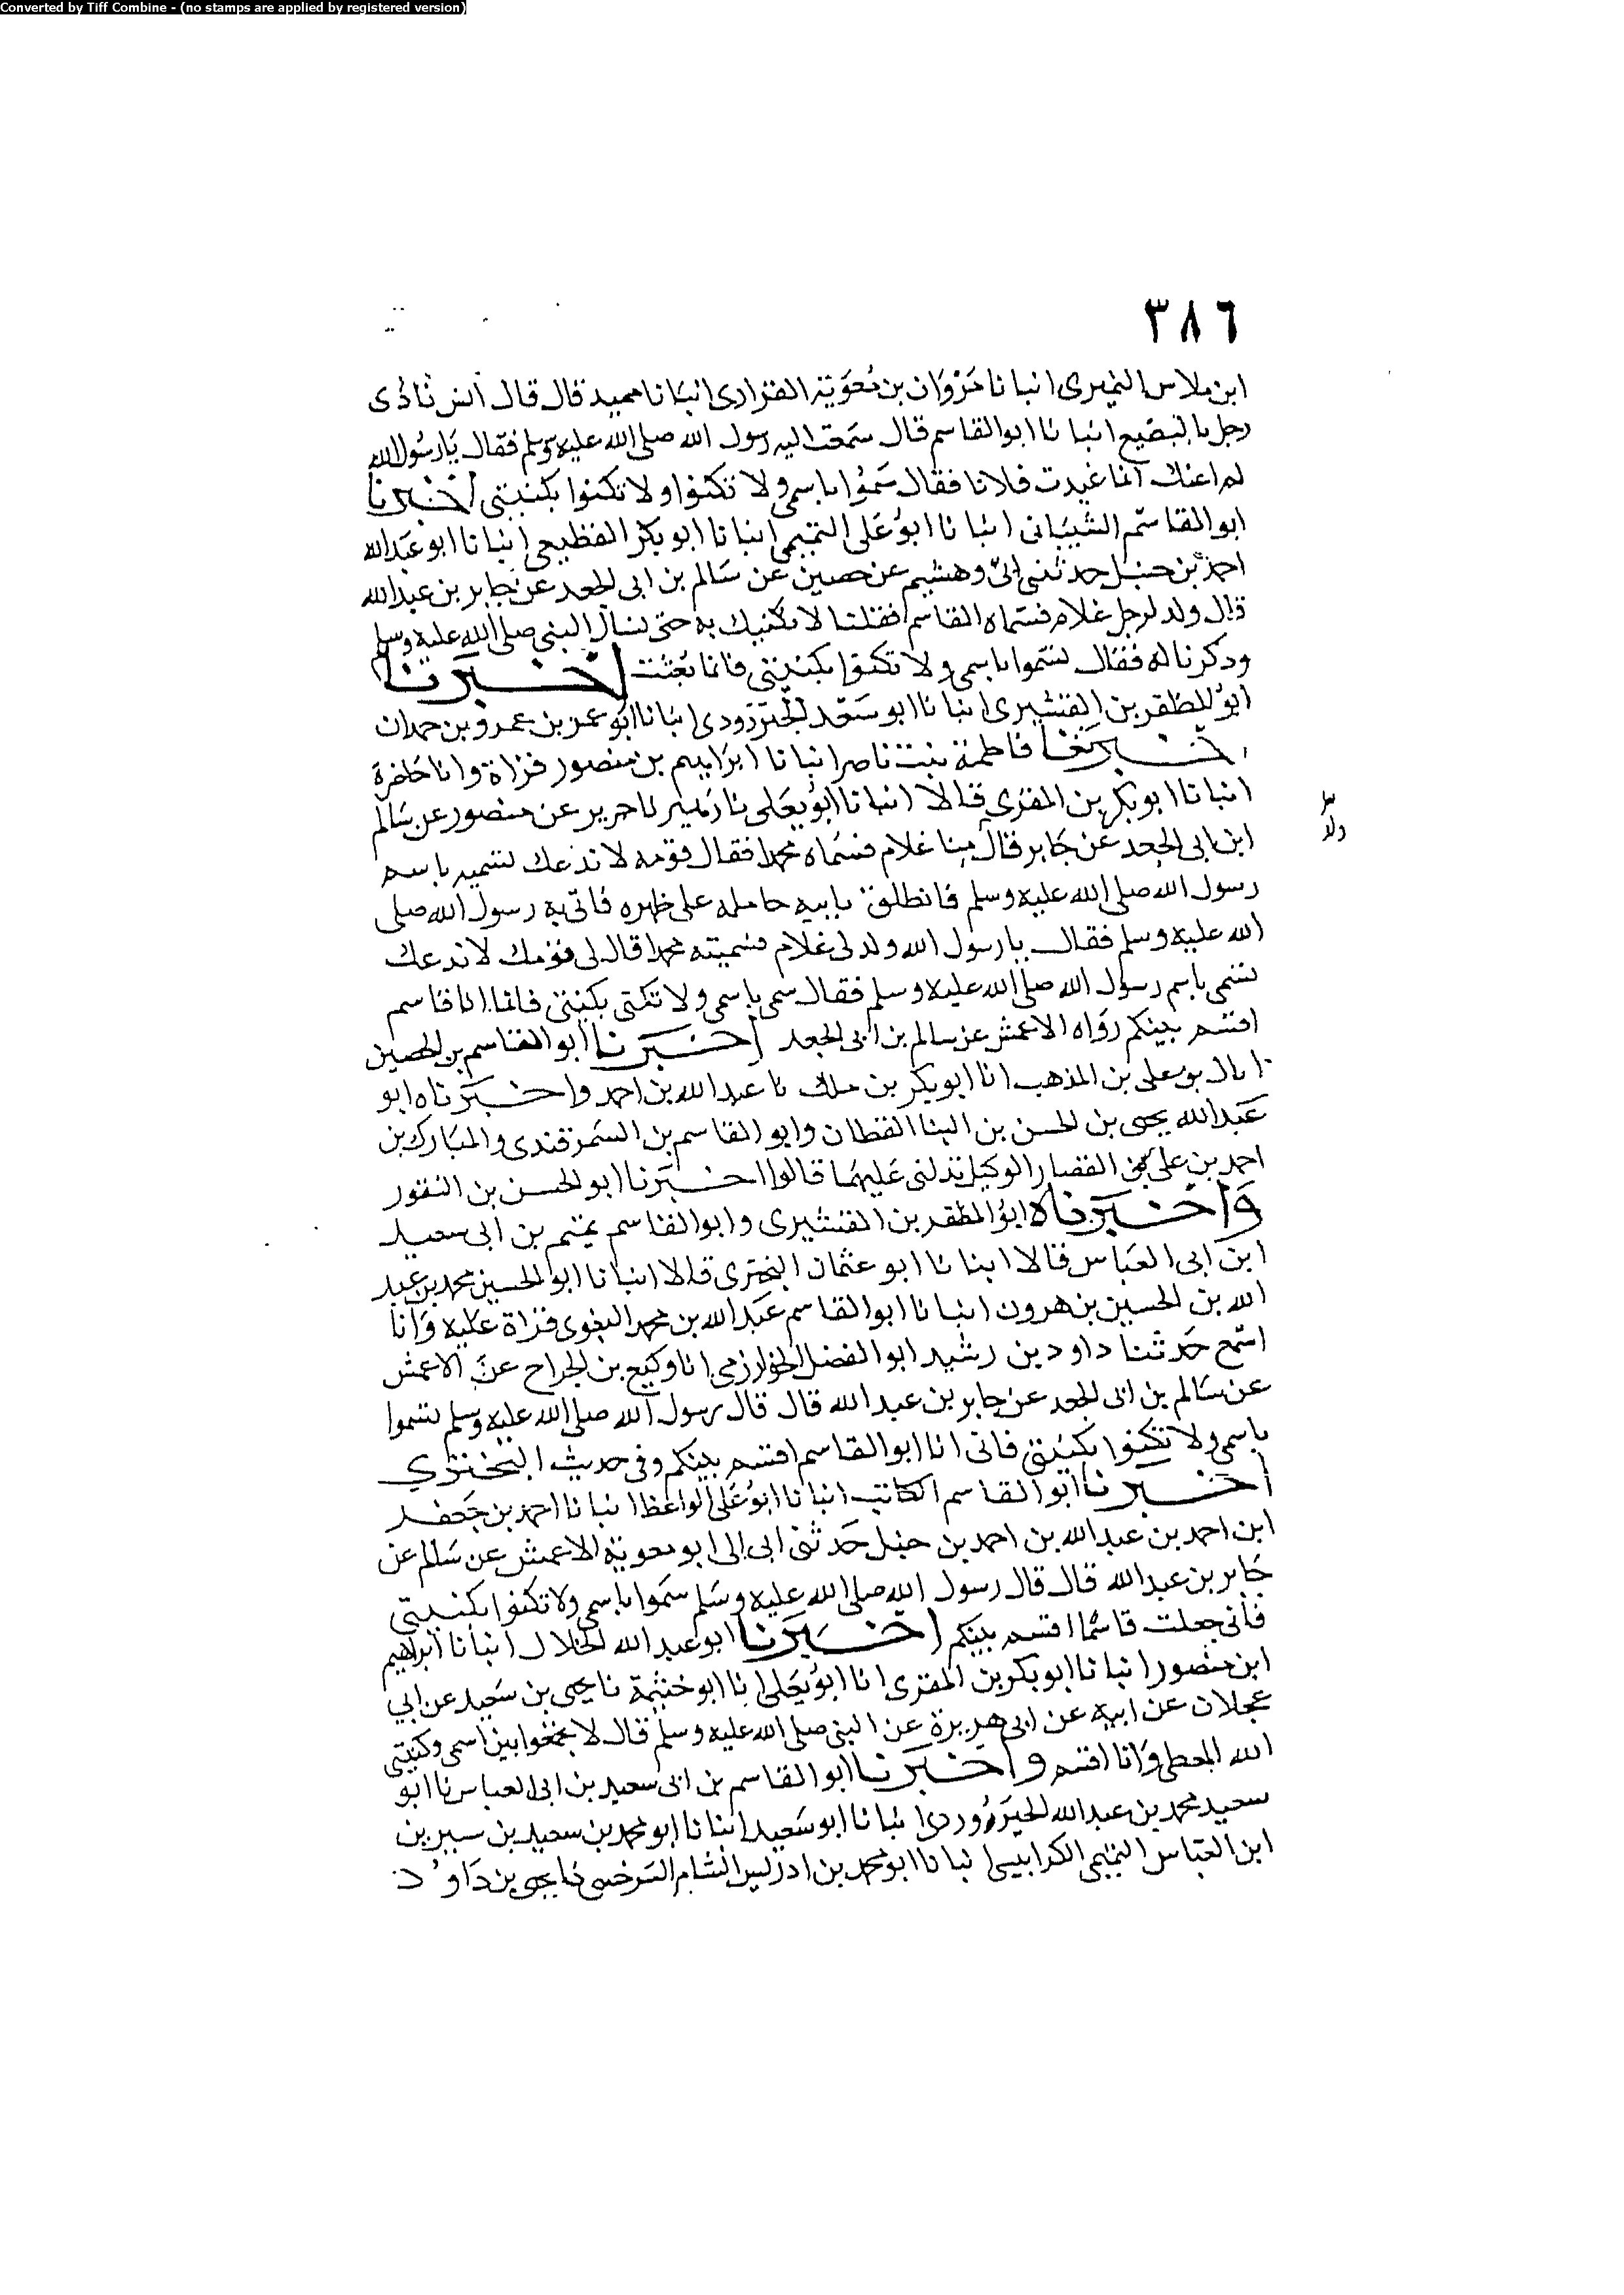 Converted by Tiff Combine - (no stamps are applied by registered version)
٣٨٦
ابن ملاس النميرى انبانا مروان بن معوية الفزارى انبانا حميد قال قال انس نادى
رجل بالبقيع انبانا ابو القاسم قال سمعت اليه رسول الله صلى الله عليه وسلم فقال يا رسول الله
لم اعنك انما عنيت فلانا فقال سموا باسمى ولا تكنوا ولا تكنوا بكنيتى اخبرنا
ابو القاسم الشيبانى انبانا ابو على التميمى انبانا ابو بكر القطيعى انبانا ابو عبد الله
احمد بن حنبل حدثنى ابى وهشيم عن حصين عن سالم بن ابى الجعد عن جابر بن عبد الله
قال ولد لرجل غلام فسماه القاسم فقلنا لا نكنيك به حتى نسال النبى صلى الله عليه وسلم
وذكرنا له فقال تسموا باسمى ولا تكنوا بكنيتى فانما بعثت اخبرنا
ابو المظفر بن القشيرى انبانا ابو سعد الجنزرودى انبانا ابو عمر بن عمرو بن حمدان
اخبرتنا فاطمة بنت ناصر انبانا ابراهيم بن منصور قراة وانا حاضرة
انبانا ابو بكر بن المقرى قالا انبانا ابو يعلى نا زهير نا جرير عن منصور عن سالم
ولد
ابن ابى الجعد عن جابر قال منا غلام فسماه محمدا فقال قومه لا ندعك تسميه باسم
رسول الله صلى الله عليه وسلم فانطلق بابنه حامله على ظهره فاتى به رسول الله صلى
الله عليه وسلم فقال يا رسول الله ولد لى غلام فسميته محمدا قال لى قومك لا ندعك
تسمى باسم رسول الله صلى الله عليه وسلم فقال سمى باسمى ولا تكنى بكنيتى فانما انا قاسم
اقسم بينكم رواه الاعمش عن سالم بن ابى الجعد اخبرنا ابو القاسم بن الحصين
على بن المذهب انا ابو بكر بن ملك نا عبد الله بن احمد واخبرناه ابو
عبد الله يحيى بن الحسن بن البنا القطان وابو القاسم بن السمرقندى والمبارك بن
احمد بن على القصار الوكيل عليهما قالوا اخبرنا ابو الحسن بن النقور
واخبرناه ابو المظفر بن القشيرى وابو القاسم تميم بن ابى سعيد
ابن ابى العباس قالا انبانا ابو عثمان البحترى قالا انبانا ابو الحسين محمد بن عبد
الله بن الحسين بن هرون انبانا ابو القاسم عبد الله بن محمد البغوى قراة عليه وانا
اسمع حدثنا داود بن رشيد ابو الفضل الخوارزمى انا وكيع بن الجراح عن الاعمش
عن سالم بن ابى الجعد عن جابر بن عبد الله قال قال رسول الله صلى الله عليه وسلم تسموا
باسمى ولا تكنوا بكنيتى فانى انا ابو القاسم اقسم بينكم وفى حديث البخترى
اخبرنا ابو القاسم الكاتب انبانا ابو على الواعظ انبانا احمد بن جعفر
ابن احمد بن عبد الله بن احمد بن حنبل حدثنى ابى ابو معوية الاعمش عن سالم عن
جابر بن عبد الله قال قال رسول الله صلى الله عليه وسلم سموا باسمى ولا تكنوا بكنيتى
فانى جعلت قاسما اقسم بينكم اخبرنا ابو عبد الله الخلال انبانا ابراهيم
ابن منصور انبانا ابو بكر بن المقرى انا ابو يعلى انا ابو خيثمة نا يحيى بن سعيد عن ابى
عجلان عن ابيه عن ابى هريرة عن النبى صلى الله عليه وسلم قال لا تجمعوا بين اسمى وكنيتى
الله المعطى وانا اقسم واخبرنا ابو القاسم بن ابى سعيد بن ابى العباس نا ابو
سعيد محمد بن عبد الله انبانا ابو سعيد انبانا ابو محمد بن سعيد بن سيرين
ابن العباس التميمى الكرابيسى انبانا ابو محمد بن ادريس الشامى السرخسى نا يحيى بن داود